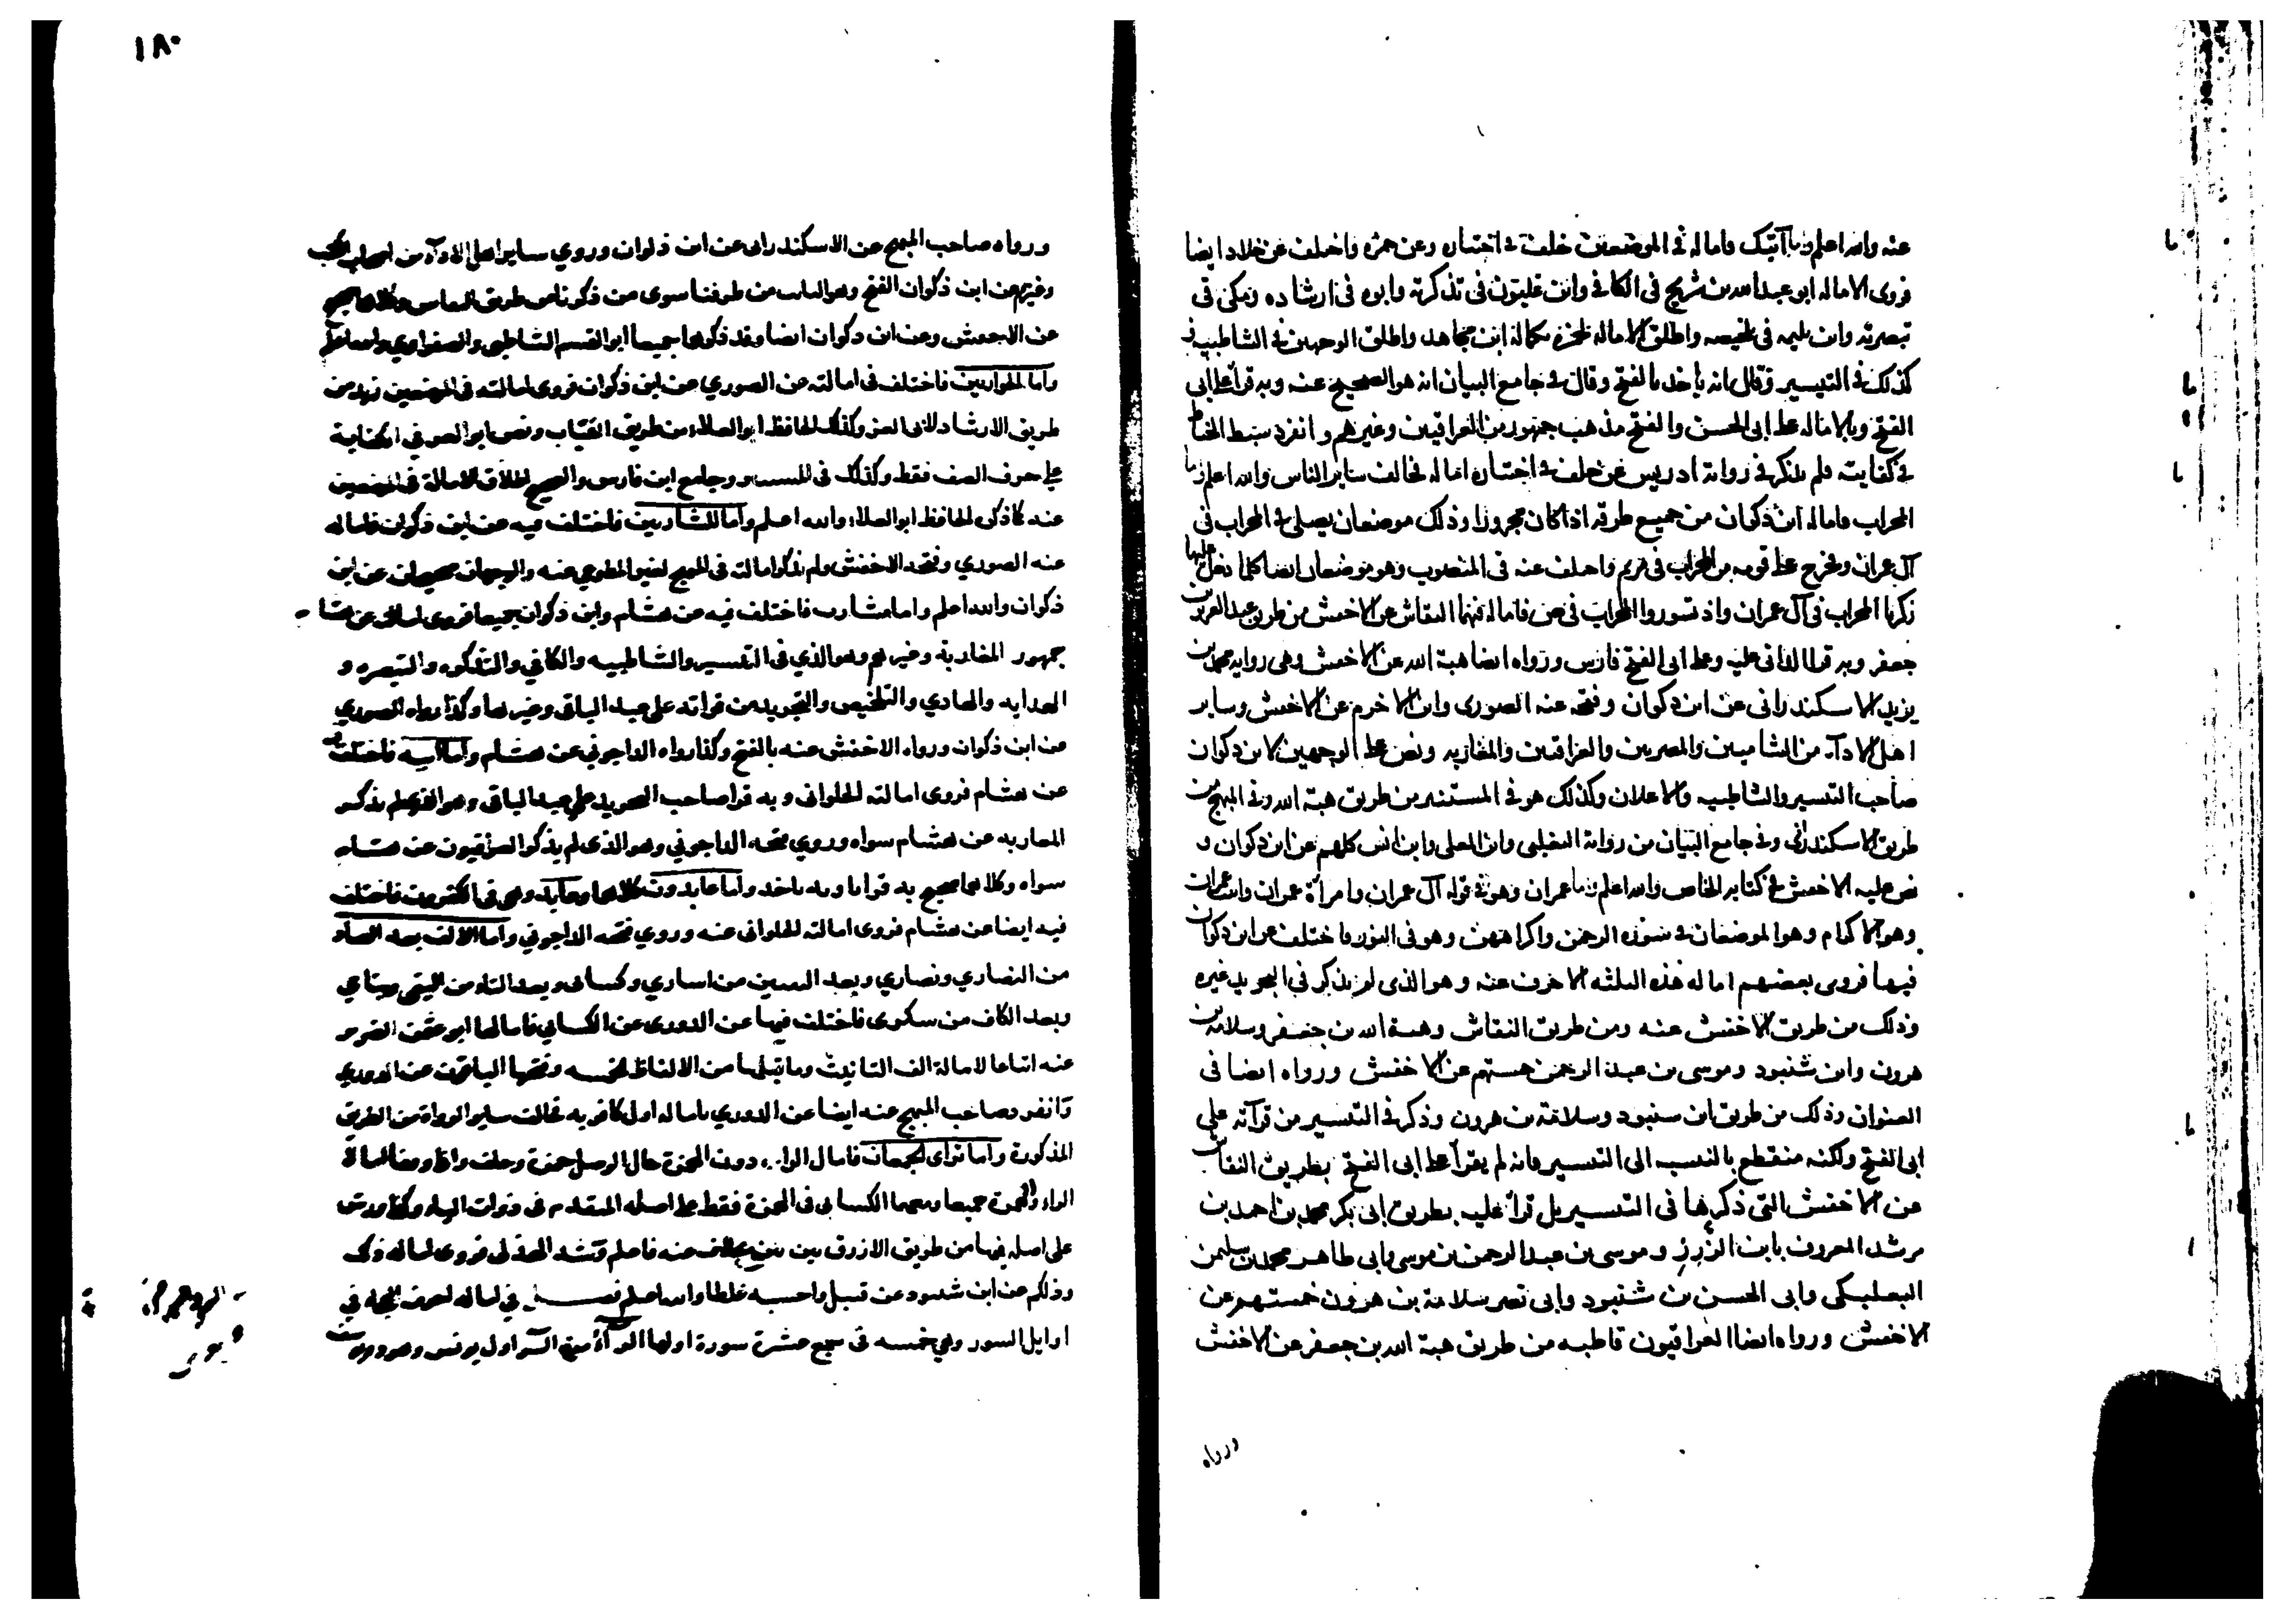 عنه والله اعلم واما آتيك فاماله في الموضعين خلف في اختياره وعن حمزة واختلف عن خلاد ايضا
فروى الاماله ابو عبد الله بن شريح في الكافي وابن غلبون في تذكرته وابوه في ارشاده ومكي في
تبصرته وابن بليمه في تلخيصه واطلق الاماله لحمزه بكماله ابن مجاهد واطلق الوجهين في الشاطبيه و
كذلك في التيسير وقال انه ياخذ بالفتح وقال في جامع البيان انه هو الصحيح عنه وبه قرأ على ابي
الفتح وبالاماله على ابي الحسن والفتح مذهب جمهور من العراقيين وغيرهم وانفرد سبط الخياط
في كفايته فلم يذكر في رواية ادريس عن خلف في اختياره اماله فخالف ساير الناس والله اعلم واما
المحراب فاماله ابن ذكوان من جميع طرقه اذا كان مجرورا وذلك موضعان يصلي في المحراب في
آل عمران وفخرج على قومه من المحراب في مريم واختلف عنه في المنصوب وهو موضعان ايضا كلما دخل عليها
زكريا المحراب في آل عمران واذ تسوروا المحراب في ص فاماله فيهما النقاش عن الاخفش من طريق عبد العزيز بن
جعفر وبه قرا الداني عليه وعلى ابي الفتح فارس ورواه ايضا هبة الله عن الاخفش وهي رواية محمد بن
يزيد الاسكندراني عن ابن ذكوان وفتحه عنه الصوري وابن الاخرم عن الاخفش وساير
اهل الاداء من الشاميين والمصريين والعراقيين والمغاربه ونص على الوجهين لابن ذكوان
صاحب التيسير والشاطبيه والاعلان وكذلك هو في المستنير من طريق هبة الله وفي المبهج من
طريق الاسكندراني وفي جامع البيان من رواية التغلبي وابن المعلى وابن انس كلهم عن ابن ذكوان و
نص عليه الاخفش في كتابه الخاص والله اعلم واما عمران وهو في قوله آل عمران وامرأة عمران وابنت عمران
وهو الاكرام وهو الموضعان في سورة الرحمن واكراههن وهو في النور فاختلف عن ابن ذكوان
فيها فروى بعضهم اماله هذه الثلثه الاحرف عنه وهو الذي لم يذكر في التجريد غيره
وذلك من طريق الاخفش عنه ومن طريق النقاش وهبة الله بن جعفر وسلامة بن
هرون وابن شنبود وموسى بن عبد الرحمن خمستهم عن الاخفش ورواه ايضا في
العنوان وذلك من طريق ابن شنبود وسلامة بن هرون وذكر في التيسير من قرآته على
ابي الفتح ولكنه منقطع بالنسبه الى التيسير فانه لم يقرأ على ابي الفتح بطريق النقاش
عن الاخفش التي ذكرها في التيسير بل قرأ عليه بطريق ابي بكر محمد بن احمد بن
مرشد المعروف بابن الزرز وموسى بن عبد الرحمن بن موسى وابي طاهر محمد بن سليمن
البعلبكي وابي الحسن بن شنبود وابي نصر سلامة بن هرون خمستهم عن
الاخفش ورواه ايضا العراقيون قاطبه من طريق هبة الله بن جعفر عن الاخفش
ورواه
١٨٠
ورواه صاحب المبهج عن الاسكندراني عن ابن ذكوان وروي ساير اهل الاداء من اصحاب الكتب
وغيرهم عن ابن ذكوان الفتح وهو الثابت من طرقنا سوى من ذكرنا من طريق النقاش وكلاهما صحيح
عن الاخفش وعن ابن ذكوان ايضا وقد ذكرهما جميعا ابو القسم الشاطبي والصفراوي والله اعلم
واما الحواريين فاختلف في امالته عن الصوري عن ابن ذكوان فروى امالته في الموضعين زيد من
طريق الارشاد لابي العز وكذلك الحافظ ابو العلاء من طريق القباب ونص ابو العز في الكفاية
على حرف الصف فقط وكذلك في المستنير وجامع ابن فارس والصحيح اطلاق الامالة في الموضعين
عنه كما ذكره الحافظ ابو العلاء والله اعلم واما للشاربين فاختلف فيه عن ابن ذكوان فاماله
عنه الصوري وفتحه الاخفش ولم يذكر امالته في المبهج لغير المطوعي عنه والوجهان صحيحان عن ابن
ذكوان والله اعلم واما مشارب فاختلف فيه عن هشام وابن ذكوان جميعا فروى امالته عن هشام
جمهور المغاربة وغيرهم وهو الذي في التيسير والشاطبيه والكافي والتذكره والتبصره و
الهدايه والهادي والتلخيص والتجريد من قرآته على عبد الباقي وغيرها وكذا رواه الصوري
عن ابن ذكوان ورواه الاخفش عنه بالفتح وكذا رواه الداجوني عن هشام واما آنيه فاختلف فيه
عن هشام فروى امالته الحلواني وبه قرا صاحب التجريد على عبد الباقي وهو الذي لم يذكر
المغاربه عن هشام سواه وروي فتحه الداجوني وهو الذي لم يذكر العراقيون عن هشام
سواه وكلاهما صحيح به قرانا وبه ناخذ واما عابدون كلاهما وعابد وهي في الكافرون فاختلف
فيه ايضا عن هشام فروى امالته الحلواني عنه وروي فتحه الداجوني واما الالف بعد الصاد
من النصارى ونصارى وبعد السين من اسارى وكسالى وبعد التاء من اليتمى ويتامى
وبعد الكاف من سكارى فاختلف فيها عن الدوري عن الكسائي فامالها ابو عثمن الضرير
عنه اتباعا لامالة الف التانيث وما قبلها من الالفاظ الخمسه وفتحها الباقون عن الدوري
وانفرد صاحب المبهج عنه ايضا عن الدوري باماله اول كافر به فخالف ساير الرواة من الطرق
المذكورة واما تراى الجمعان فامال الراء دون الهمزة حال الوصل حمزة وخلف واذا وقفا امالا
الراء والهمزة جميعا ومعهما الكسائي في الهمزة فقط على اصله المتقدم في ذوات الياء وكذا ورش
على اصله فيها من طريق الازرق بين بين بخلاف عنه فاعلم وشذ الهذلي فروى اماله ذلك
وذلكم عن ابن شنبود عن قنبل واحسبه غلطا والله اعلم فصـــل في اماله احرف الهجاء في
اوايل السور وهي خمسه في سبع عشرة سورة اولها الراء من الر اول يونس وهود ويوسف